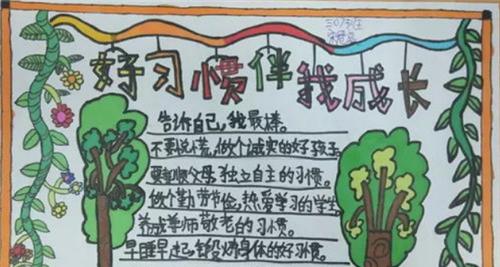 好习惯伴我成长
告诉自己,我最棒。
不要说谎,做个诚实的好孩子
父母独立自主的习惯。
做个勤劳节俭,热爱学习的学生
养成尊师敬老的习惯。
早睡早起,锻炼身体的好习惯。